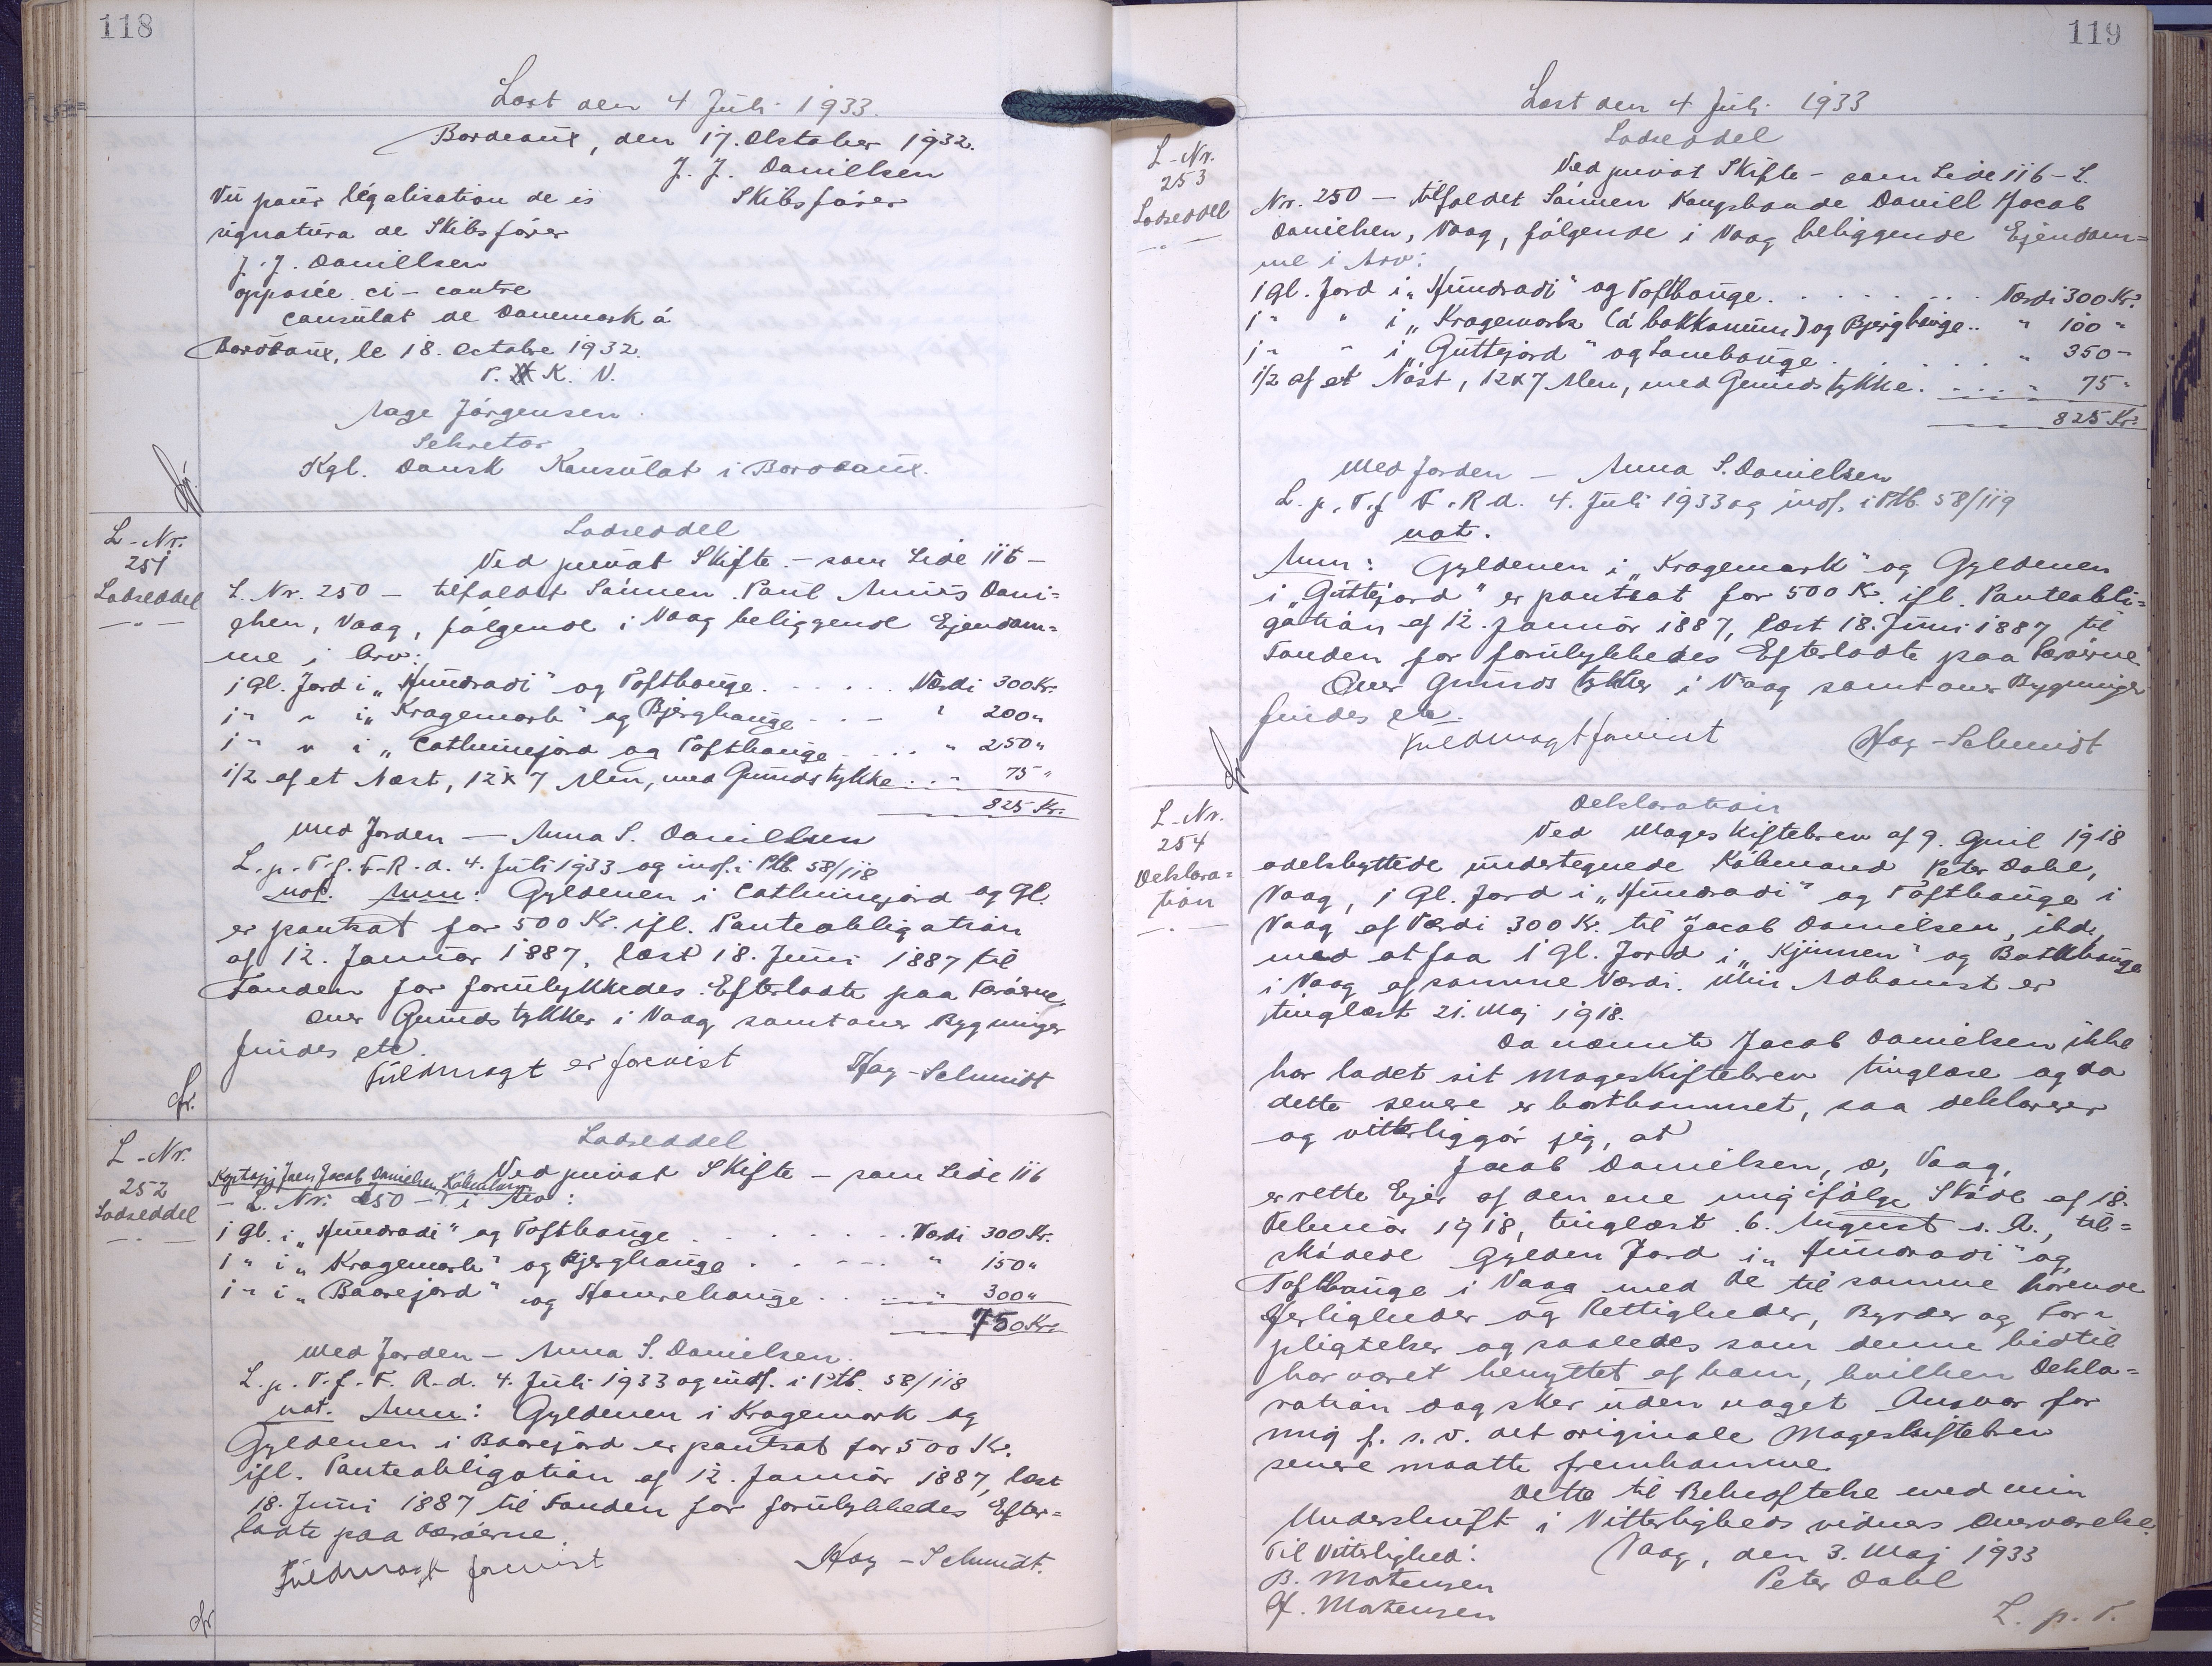 118
Læst den 4 Juli 1933.
Bordeaux, den 17. Oktober 1932.
J. J. Danillsen
Skibsfører
Vu pour légalisation de is
signatura de Skibsfører
J. J. Danillsen
opposée ci-contre
Consulat de Danemark á
Bordeaux, le 18. Octobre 1932.
P. K. V.
Aage Jörgensen.
Sekretær
Kgl. Dansk Konsulat i Bordeaux.
L-Nr.
251
Lodseddel
Lodseddel
Ved privat Skifte - som Side 116 -
L. Nr. 250 - tilfaldet Sønnen Paul Annius Dani=
elsen, Vaag, følgende i Vaag beliggende Ejendom=
me i Arv:
1 Gl. Jord i „Hundradi" og Tofthauge. . . . . . Værdi 300 Kr.
1 " " i „Kragemark" og Bjerghauge - . - " 200 "
1 " " i „Cathrinejord og Tofthauge . . . " 250 "
1/2 af et Næst, 12 x 7 Alen, med Grundstykke . . " 75 "
825 Kr.
Med Jorden - Anna S. Danillsen
L. p. T. f. F. R. d. 4. Juli 1933 og indf. i Ptb. 58/118
not. Anm: Gyldenen i Cathrinejord og Gl.
er pantsat for 500 Kr. ifl. Panteobligation
af 12. Januar 1887, læst 18. Juni 1887 til
Fonden for forulykkedes Efterladte paa Færøerne.
Over Grundstykker i Vaag samt over Bygninger
findes etc.
Fuldmagt er forevist
Hay-Schmidt
L-Nr.
252
Lodseddel
Lodseddel
Kaptajn Joen Jacob Danielsen, København
Ved privat Skifte - som Side 116
- L. Nr. 250 - i Arv:
1 Gl. i „Hundradi" og Tofthauge . . . . . . . Værdi 300 Kr.
1 " i „Kragemark" og Bjerghauge . . - - - . " 150 "
1 " i „Baarejord" og Hamrehauge . . . . " 300 "
750 Kr.
Med Jorden - Anna S. Danielsen.
L. p. T. f. F. R. d. 4. Juli 1933 og indf. i Ptb. 58/118
not. Anm: Gyldenen i Kragemark og
Gyldenen i Baarejord er pantsat for 500 Kr.
ifl. Panteobligation af 12. Januar 1887, læst
18. Juni 1887 til Fonden for forulykkedes Efter=
ladte paa Færøerne.
Fuldmagt forevist
Hay-Schmidt.
119
Læst den 4 Juli 1933
L-Nr.
253
Lodseddel
Lodseddel
Ved privat Skifte - som Side 116 - L.
Nr. 250 - tilfaldet Sønnen Kongsbonde Daniel Jacob
Danielsen, Vaag, følgende i Vaag beliggende Ejendom=
me i Arv:
1 Gl. Jord i „Hundradi" og Tofthauge. . . . . . . Værdi 300 Kr.
1 " " i „Kragemark (á bakkanum) og Bjerghauge.. " 100 "
1 " " i „Guttejord" og Sambauge . . . . . " 350 "
1/2 af et Nøst, 12x7 Alen, med Grundstykke . . . . " 75 "
825 Kr.
Med Jorden - Anna S. Danielsen
L. p. T. f. F. R d. 4. Juli 1933 og indf. i Ptb. 58/119
not.
Anm: Gyldenen i „Kragemark" og Gyldenen
i „Guttejord" er pantsat for 500 Kr. ifl. Panteobli=
gation af 12. Januar 1887, læst 18. Juni 1887 til
Fonden for forulykkedes Efterladte paa Færøerne.
Over Grundstykker i Vaag samt over Bygninger
findes etc.
Fuldmagt forevist
Hay-Schmidt
L-Nr.
254
Deklara=
tion
Deklaration
Ved Mageskiftebrev af 9. April 1918
odelsbyttede undertegnede Købmand Peter Dahl,
Vaag, 1 Gl. Jord i „Hundradi" og Tofthauge i
Vaag af Værdi 300 Kr. til Jacob Danielsen, ibd.,
mod at faa 1 Gl. Jord i „Kjinnen" og Bakkhauge
i Vaag af samme Værdi. Min Adkomst er
tinglæst 21. Maj 1918.
Da nævnte Jacob Danielsen ikke
har ladet sit Mageskiftebrev tinglæse og da
dette senere er bortkommet, saa deklarerer
og vitterliggør jeg, at
Jacob Danielsen, , Vaag,
er rette Ejer af den ene mig ifølge Skøde af 18.
Februar 1918, tinglæst 6. August s. A., til=
skødede Gylden Jord i „Hundradi" og
Tofthauge i Vaag med de til samme hørende
Herligheder og Rettigheder, Byrder og For=
pligtelser og saaledes som denne hidtil
har været benyttet af ham, hvilken Dekla=
ration dog sker uden noget Ansvar for
mig f. s. v. det originale Mageskiftebrev
senere maatte fremkomme.
Dette til Bekræftelse med min
Underskrift i Vitterligheds vidners Overværelse.
Til Vitterlighed:
Vaag, den 3. Maj 1933
B. Mortensen
Peter Dahl
H. Mortensen
L. p. T.